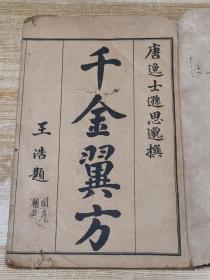 唐逸士孫思邈撰
千金翼方
王浩題